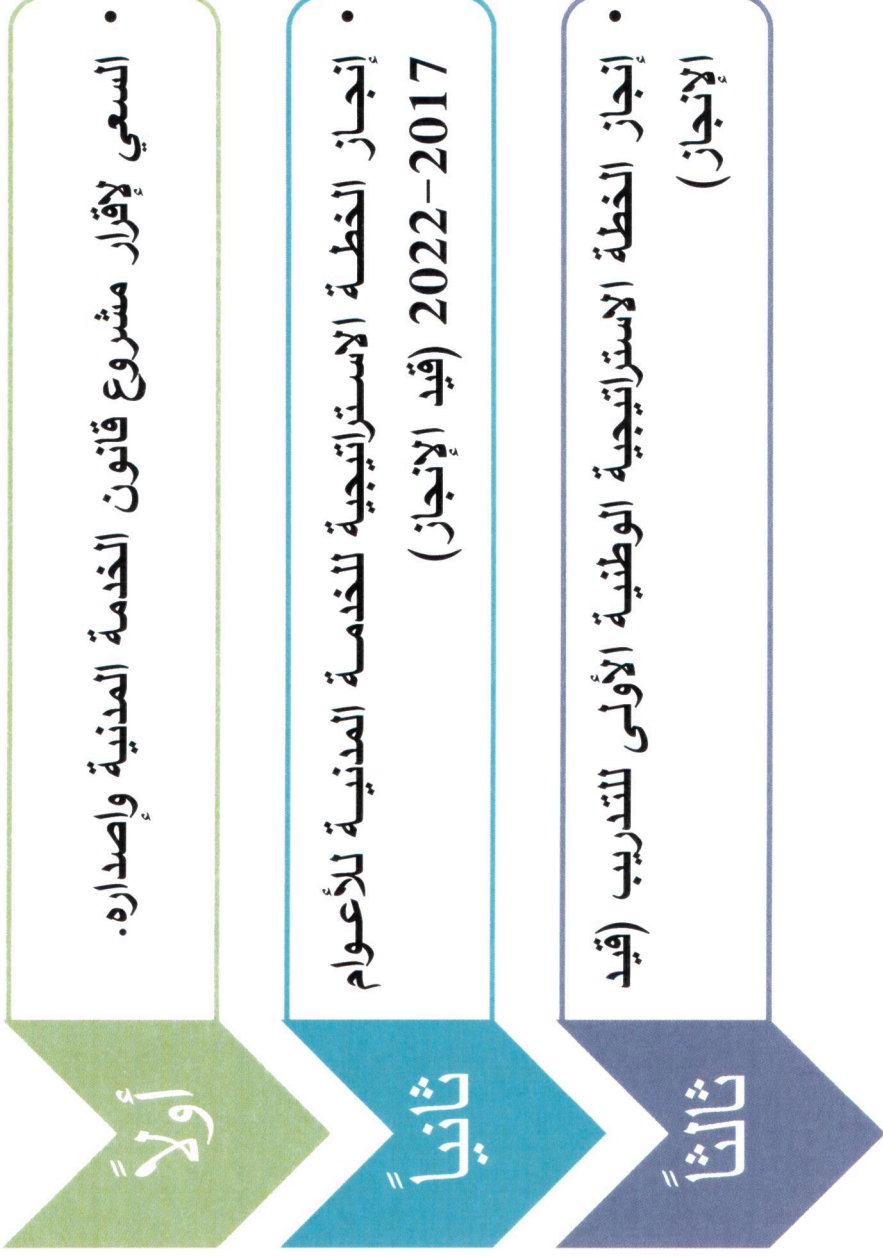 أولاً
• السعي لإقرار مشروع قانون الخدمة المدنية وإصداره.
ثانياً
• إنجاز الخطة الاستراتيجية للخدمة المدنية للأعوام
2017-2022 (قيد الإنجاز)
ثالثاً
• إنجاز الخطة الاستراتيجية الوطنية الأولى للتدريب (قيد
الإنجاز)